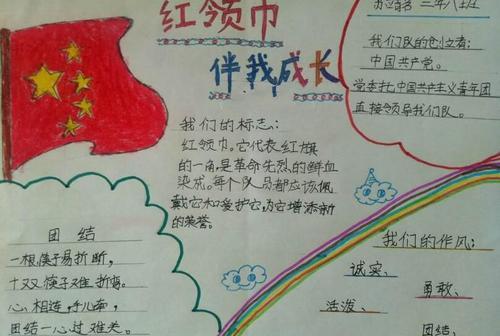 红领巾
伴我成长
二年八班
我们队的创立者:
中国共产党。
党委托中国共产主义青年团
直接领导我们队。
我们的标志:
红领巾。它代表红旗
的一角,是革命先烈的鲜血
染成。每个队员都应该佩
戴它和爱护它,为它增添新
的荣誉。
团结
一根筷子易折断,
十双筷子难折弯。
心相连,手儿牵,
团结一心过难关。
我们的作风:
诚实、
勇敢、
活泼、
团结、